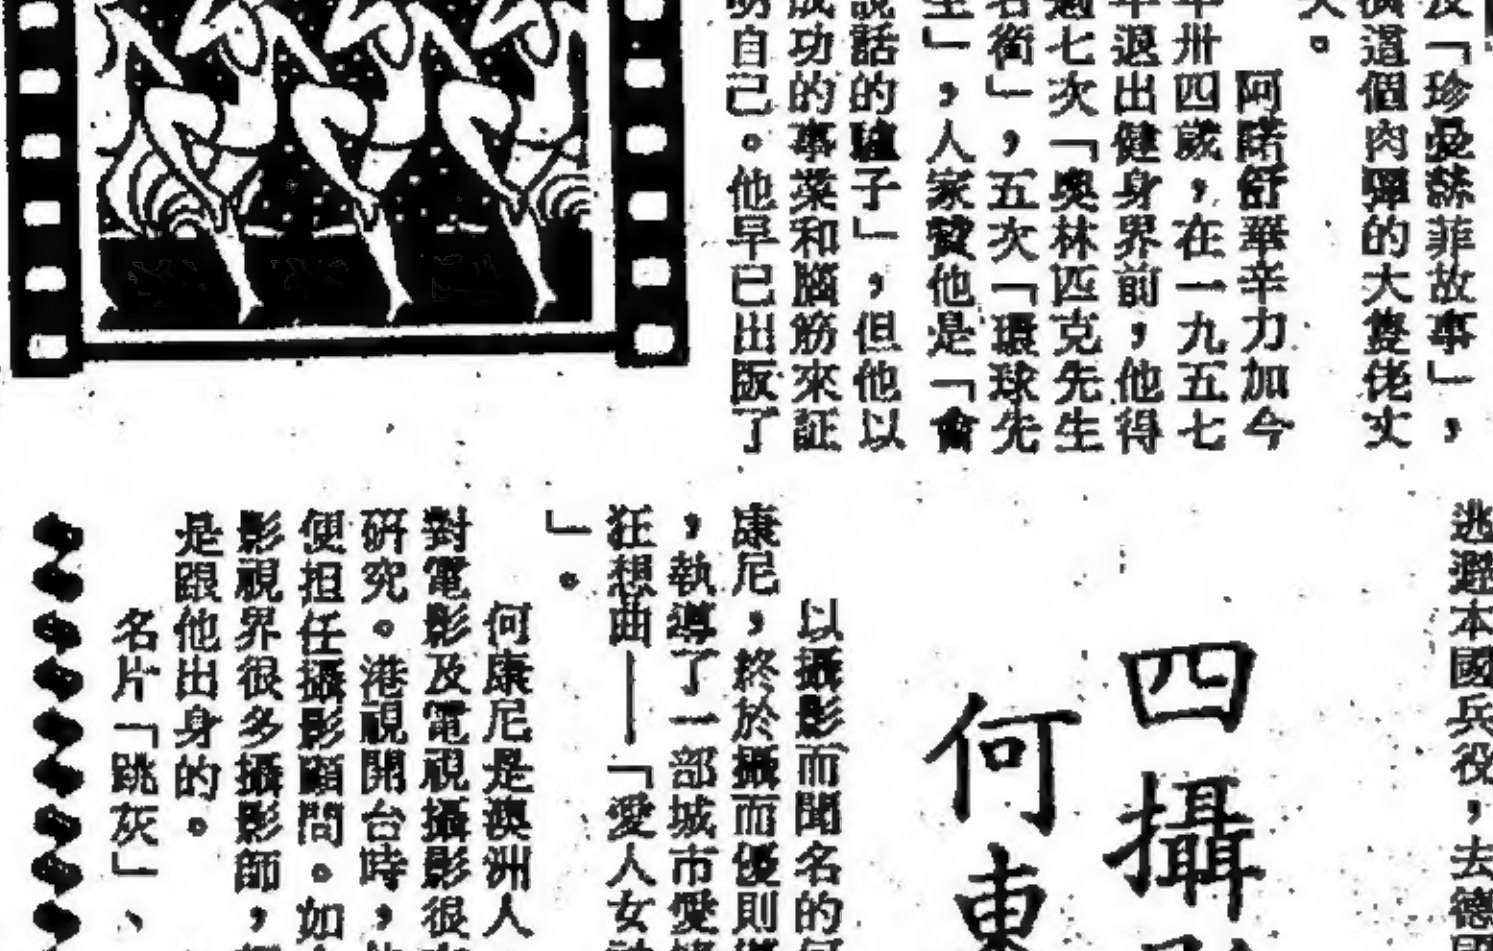 「珍愛蒜菲故事」，
這個肉彈的大隻佬丈
夫。
阿諾舒華辛力加今
年卅四歲，在一九五七
年退出健身界前，他得
過七次「奧林匹克先生
名銜」，五次「環球先
生」，人家贊他是「會
說話的驢子」，但他以
成功的事業和腦筋來証
明自己。他早已出版了
逃避本國兵役，去德國
四攝影
何東
以攝影而聞名的何
康尼，終於攝而優則導
，執導了一部城市愛情
狂想曲——「愛人女神
」。
何康尼是澳洲人
對電影及電視攝影很
研究。港視開台時，
便担任攝影顧問。如
影視界很多攝影師，
是跟他出身的。
名片「跳灰」、